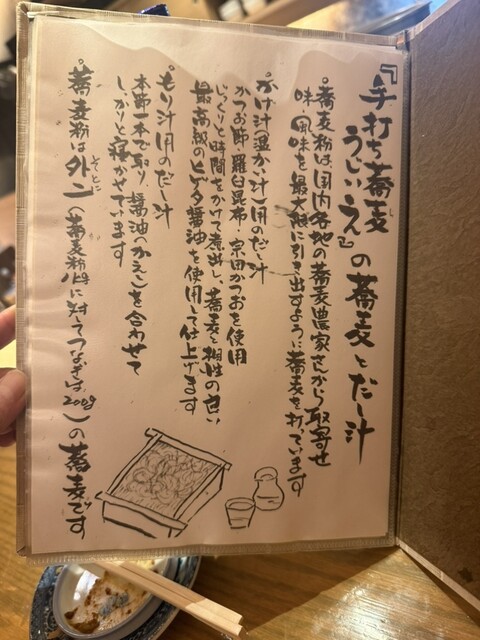 『手打ち蕎麦
うしいえ』の蕎麦とだし汁
蕎麦粉は、国内各地の蕎麦農家さんから取寄せ
味・風味を最大限に引き出すように蕎麦を打っています
かけ汁(温かい汁)用のだし汁
かつお節・羅臼昆布・宗田かつおを使用
じっくりと時間をかけて煮出し、蕎麦と相性の良い
最高級のヒゲタ醤油を使用して仕上げます
もり汁用のだし汁
本節一本で取り、醤油(かえし)を合わせて
しっかりと寝かせています
蕎麦粉は外二(蕎麦粉1kgに対してつなぎは、200g)の蕎麦です
そとに